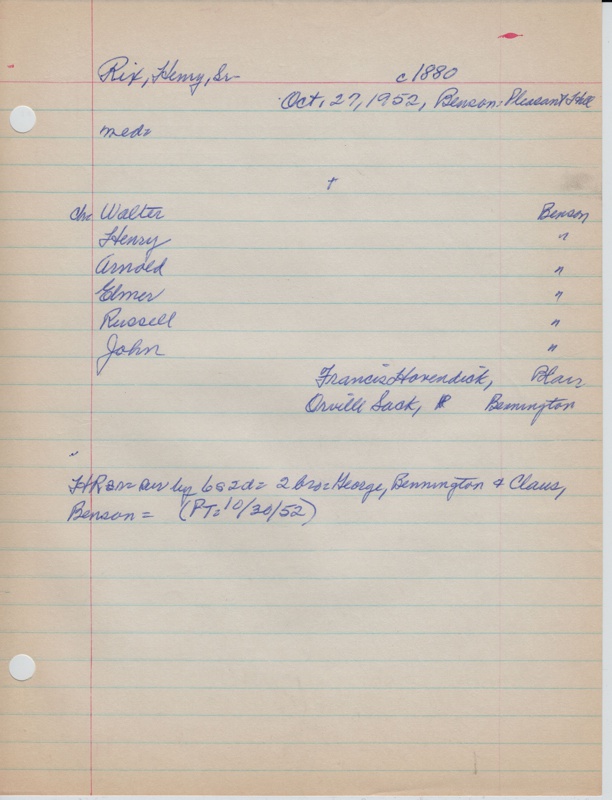 Rix, Henry, Sr c1880
Oct. 27, 1952, Benson: Pleasant Hill
med=
+
ch: Walter Benson
Henry "
Arnold "
Elmer "
Russell "
John "
Francis Hovendick, Blair
Orville Sack, Bennington
"
HR sr= sur by 6s 2d= 2 bro= George, Bennington & Claus,
Benson = (PT: 10/30/52)